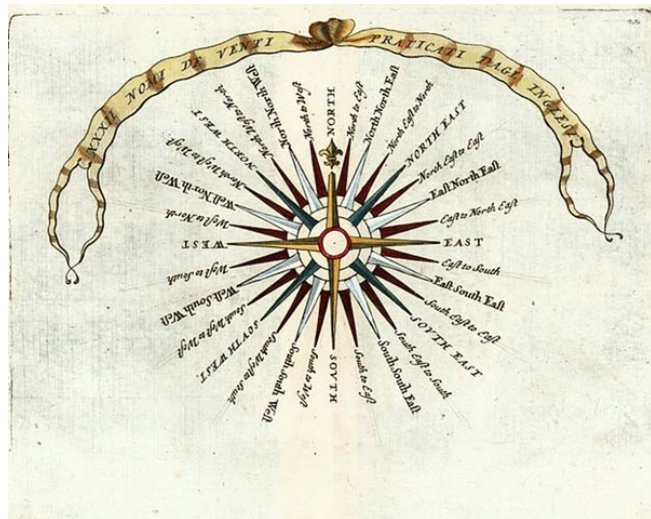 XXXII NOMI DE VENTI PRATICATI DAGL INGLESI
NORTH
North to East
North North East
North East to North
NORTH EAST
North East to East
East North East
East to North East
EAST
East to South
East South East
South East to East
SOVTH EAST
South East to South
South South East
South to East
SOVTH
South to West
South South West
South West to South
SOVTH WEST.
South West to West
West South West
West to South
WEST
West to North
West North West
North West to West
NORTH WEST
North West to North
North North West
North to West